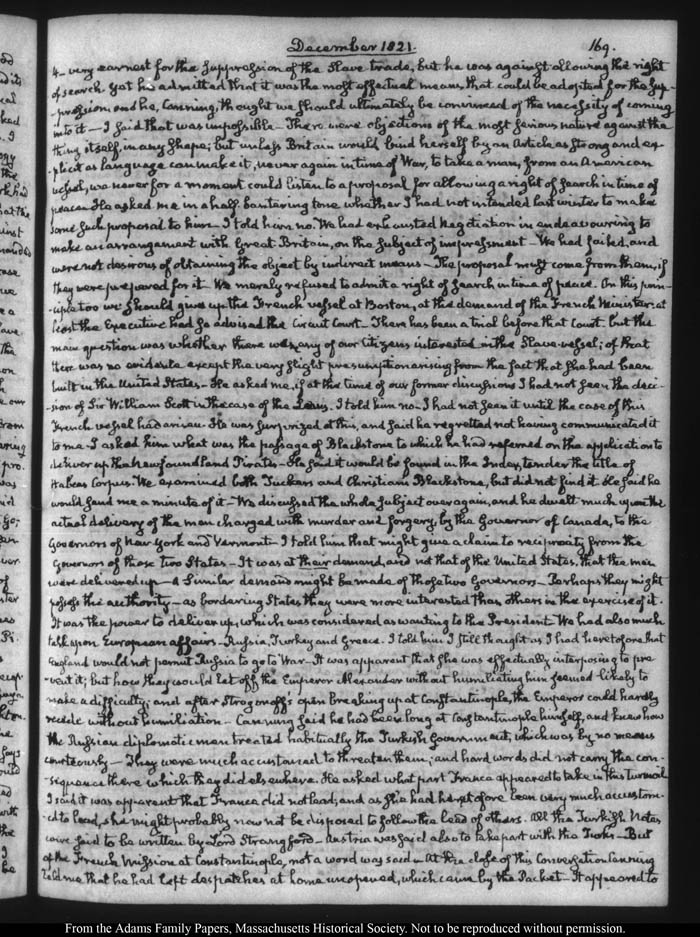 December 1821.
169.
4– very earnest for the suppression of the Slave trade, but he was against allowing the right
of search. Yet he admitted that it was the most effectual means, that could be adopted for the Sup-
-pression and he, Canning, thought we should ultimately be convinced of the necessity of coming
into it — I said that was impossible — There were objections of the most serious nature against the
thing itself, in any shape; but unless Britain would bind herself by an Article as strong and ex-
plicit as language can make it, never again in time of War, to take a man, from an American
vessel, we never for a moment could listen to a proposal for allowing a right of search in time of
peace. He asked me in a half bantering tone whether I had not intended last winter to make
some such proposal to him — I told him no. We had exhausted Negotiation in endeavouring to
make an arrangement with Great Britain, on the subject of impressment — We had failed, and
were not desirous of obtaining the object by indirect means — The proposal must come from them, if
they were prepared for it. We merely refused to admit a right of search in time of peace. On this prin-
-ciple too we should give up the French vessel at Boston, at the demand of the French Minister: at
least the Executive had so advised the Circuit Court — There has been a trial before that Court but the
main question was whether there were any of our Citizens interested in the Slave-vessel; of that
there was no evidence except the very slight presumption arising from the fact that she had been
built in the United States — He asked me, if at the time of our former discussions I had not seen the deci-
-sion of Sir William Scott in the case of the Louis. I told him no — I had not seen it until the case of this
French vessel had arisen. He was surprized at this, and said he regretted not having communicated it
to me. I asked him what was the passage of Blackstone to which he had referred on the application to
deliver up the Newfoundland Pirates — He said it would be found in the Index, under the title of
Habeas Corpus. We examined both Tuckers and Christian's Blackstone, but did not find it. He said he
would send me a minute of it — We discussed the whole subject over again, and he dwelt much upon the
actual delivery of the men charged with murder and forgery, by the Governor of Canada, to the
Governors of New York and Vermont — I told him that might give a claim to reciprocity from the
Governors of those two States — It was at their demand, and not that of the United States, that the men
were delivered up — A similar demand might be made of those two Governors — Perhaps they might
possess the authority — as bordering States they were more interested than others in the exercise of it.
It was the power to deliver up, which was considered as wanting to the President. We had also much
talk upon European affairs — Russia, Turkey and Greece. I told him I still thought as I had heretofore that
England would not permit Russia to go to War. It was apparent that she was effectually interposing to pre-
-vent it; but how they would let off the Emperor Alexander without humiliating him seemed likely to
make a difficulty; and after Strogonoff's open breaking up at Constantinople, the Emperor could hardly
recede without humiliation — Canning said he had been long at Constantinople himself, and knew how
the Russian diplomatic men treated habitually the Turkish Government, which was by no means
courteously — They were much accustomed to threaten them; and hard words did not carry the con-
-sequence there which they did elsewhere. He asked what part France appeared to take in this turmoil.
I said it was apparent that France did not lead; and as she had heretofore been very much accustom-
-ed to lead, she might probably now not be disposed to follow the lead of others. All the Turkish Notes
were said to be written by Lord Strangford — Austria was said also to take part with the Turks — But
of the French Mission at Constantinople, not a word was said — At the close of this Conversation Canning
told me that he had left despatches at home unopened, which came by the Packet — It appeared to
From the Adams Family Papers, Massachusetts Historical Society. Not to be reproduced without permission.